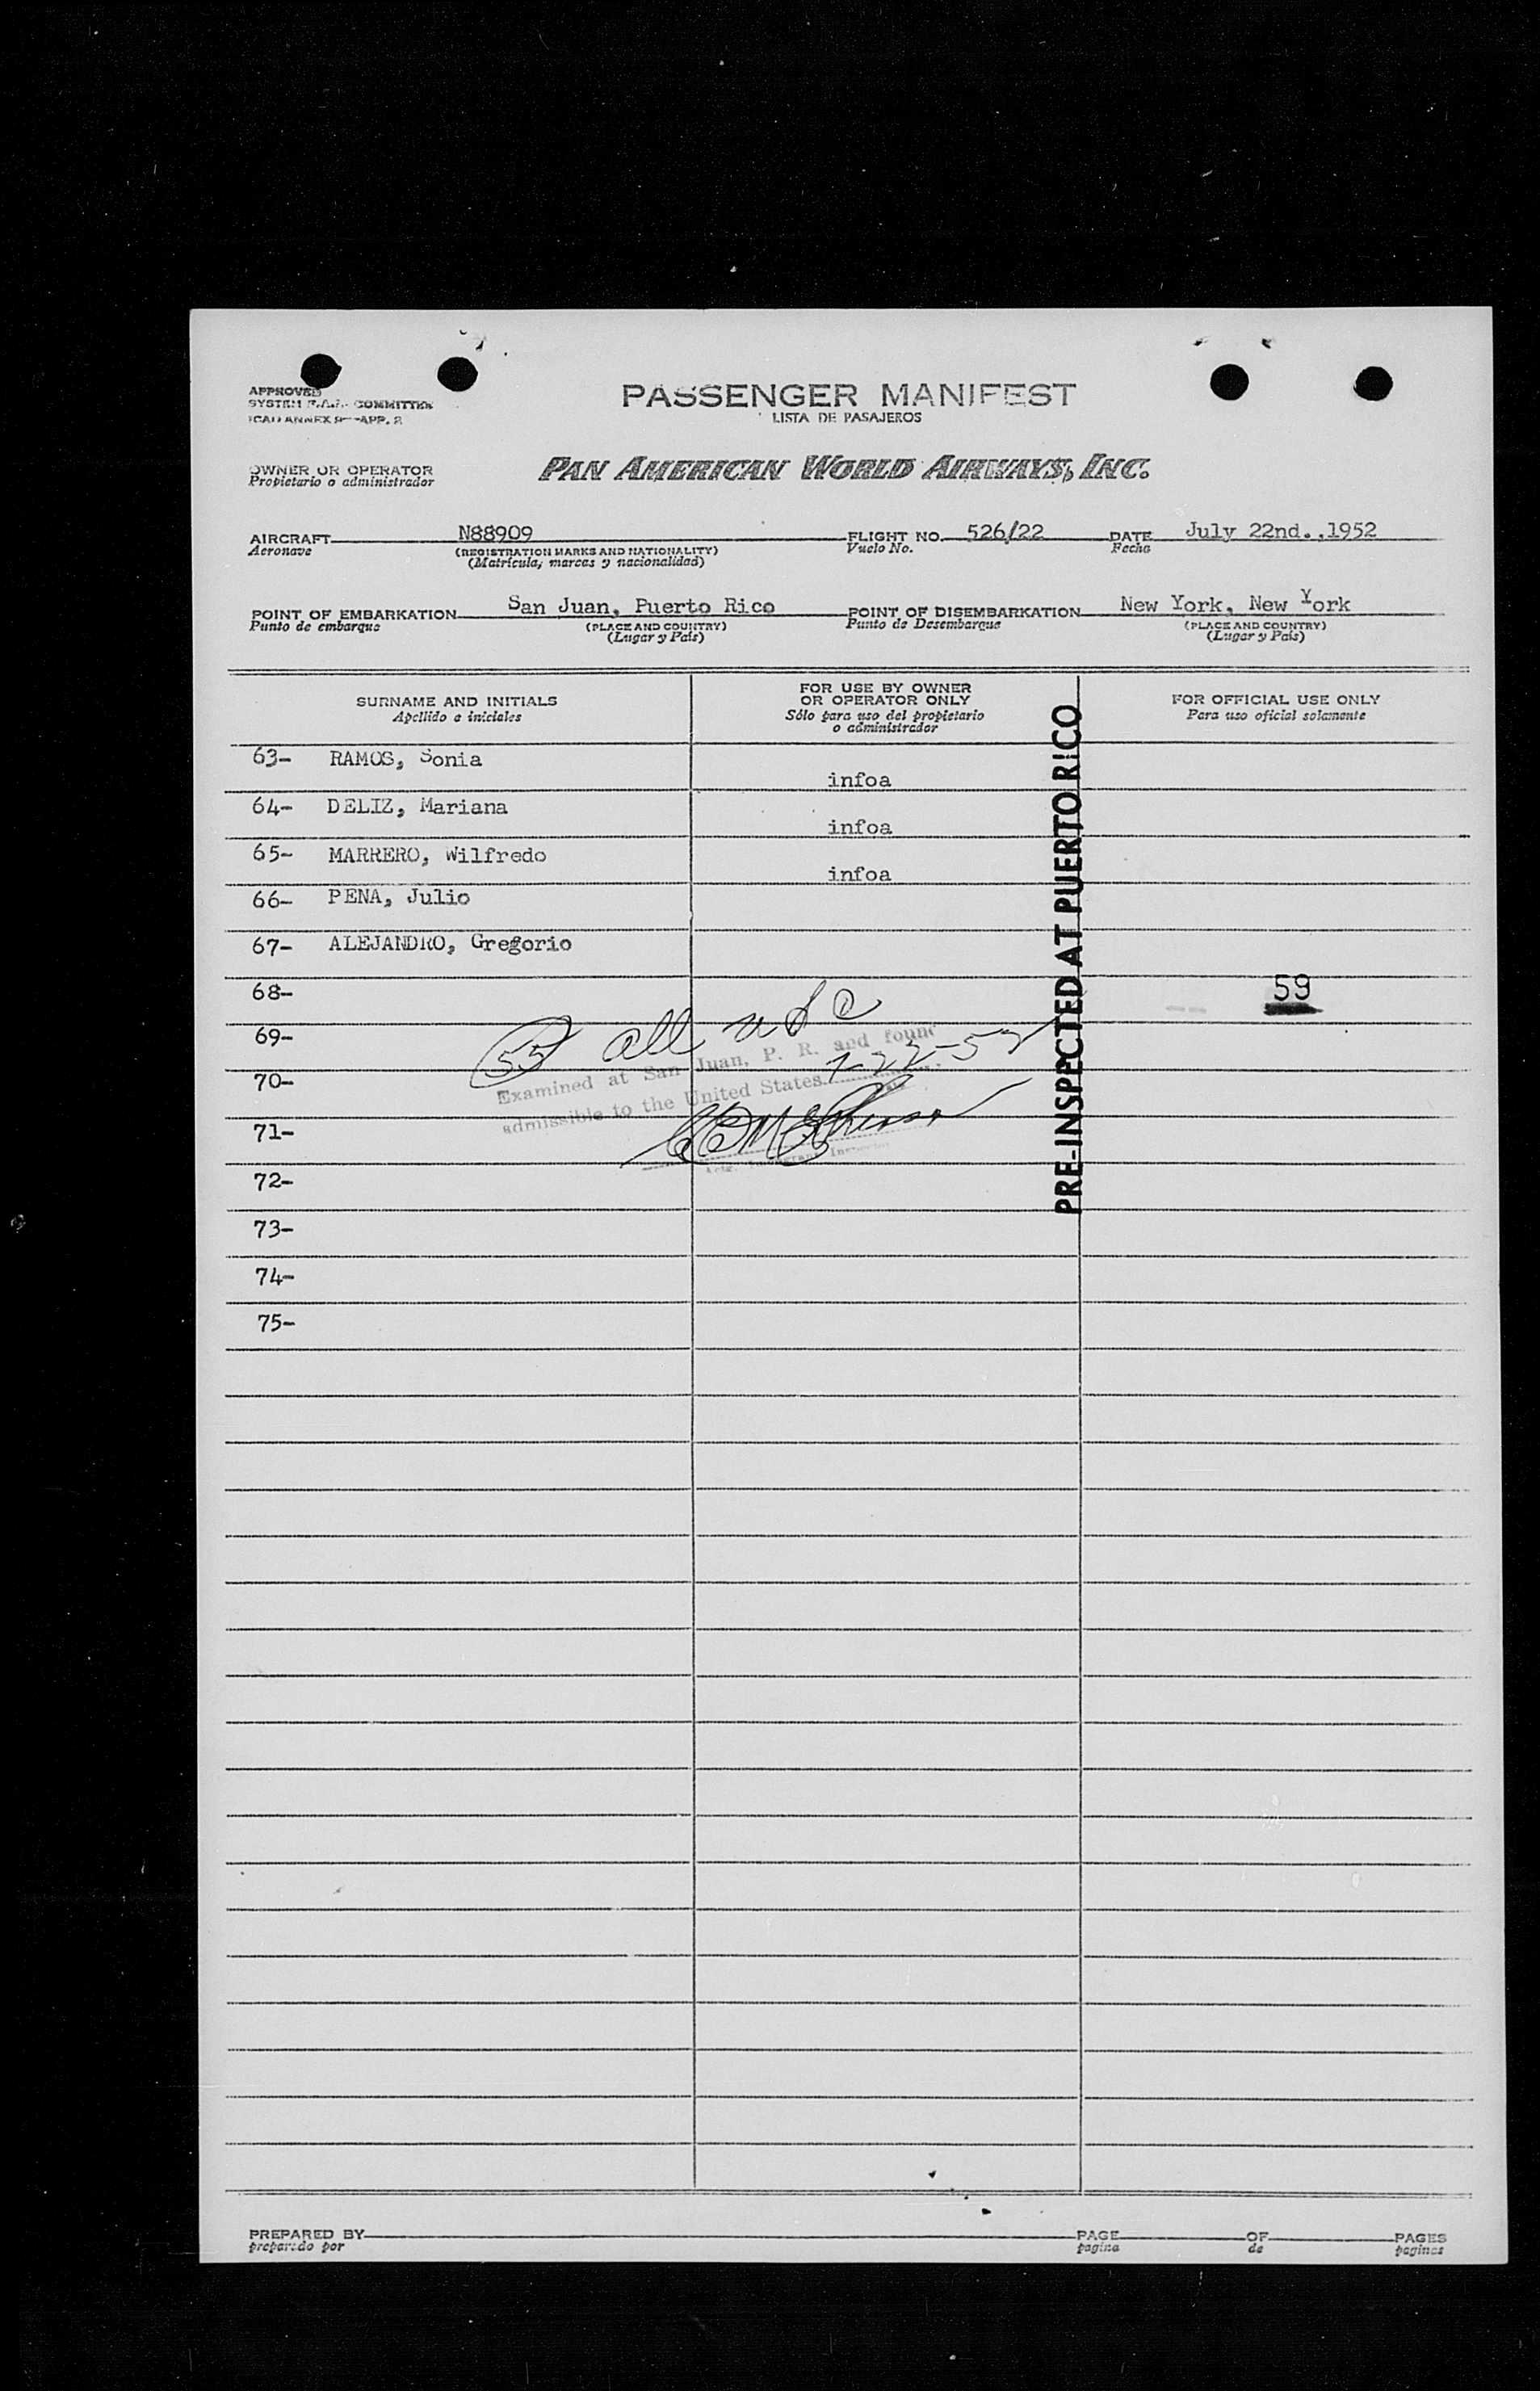 APPROVED
SYSTEM F.A.L. COMMITTEE
ICAO ANNEX 9—APP. 2
PASSENGER MANIFEST
LISTA DE PASAJEROS
OWNER OR OPERATOR
Propietario o administrador
PAN AMERICAN WORLD AIRWAYS, INC.
AIRCRAFT N88909 FLIGHT NO. 526/22 DATE July 22nd.,1952
Aeronave (REGISTRATION MARKS AND NATIONALITY) Vuelo No. Fecha
(Matrícula, marcas y nacionalidad)
POINT OF EMBARKATION San Juan, Puerto Rico POINT OF DISEMBARKATION New York, New York
Punto de embarque (PLACE AND COUNTRY) Punto de Desembarque (PLACE AND COUNTRY)
(Lugar y País) (Lugar y País)
SURNAME AND INITIALS
Apellido e iniciales
FOR USE BY OWNER
OR OPERATOR ONLY
Sólo para uso del propietario
o administrador
FOR OFFICIAL USE ONLY
Para uso oficial solamente
63- RAMOS, Sonia
infoa
64- DELIZ, Mariana
infoa
65- MARRERO, Wilfredo
infoa
66- PENA, Julio
67- ALEJANDRO, Gregorio
68- 59
69-
55 all usc
70-
Examined at San Juan, P. R. and found
admissible to the United States 7-22-52
71-
72-
73-
74-
75-
PRE-INSPECTED AT PUERTO RICO
PREPARED BY PAGE OF PAGES
preparado por pagina de paginas